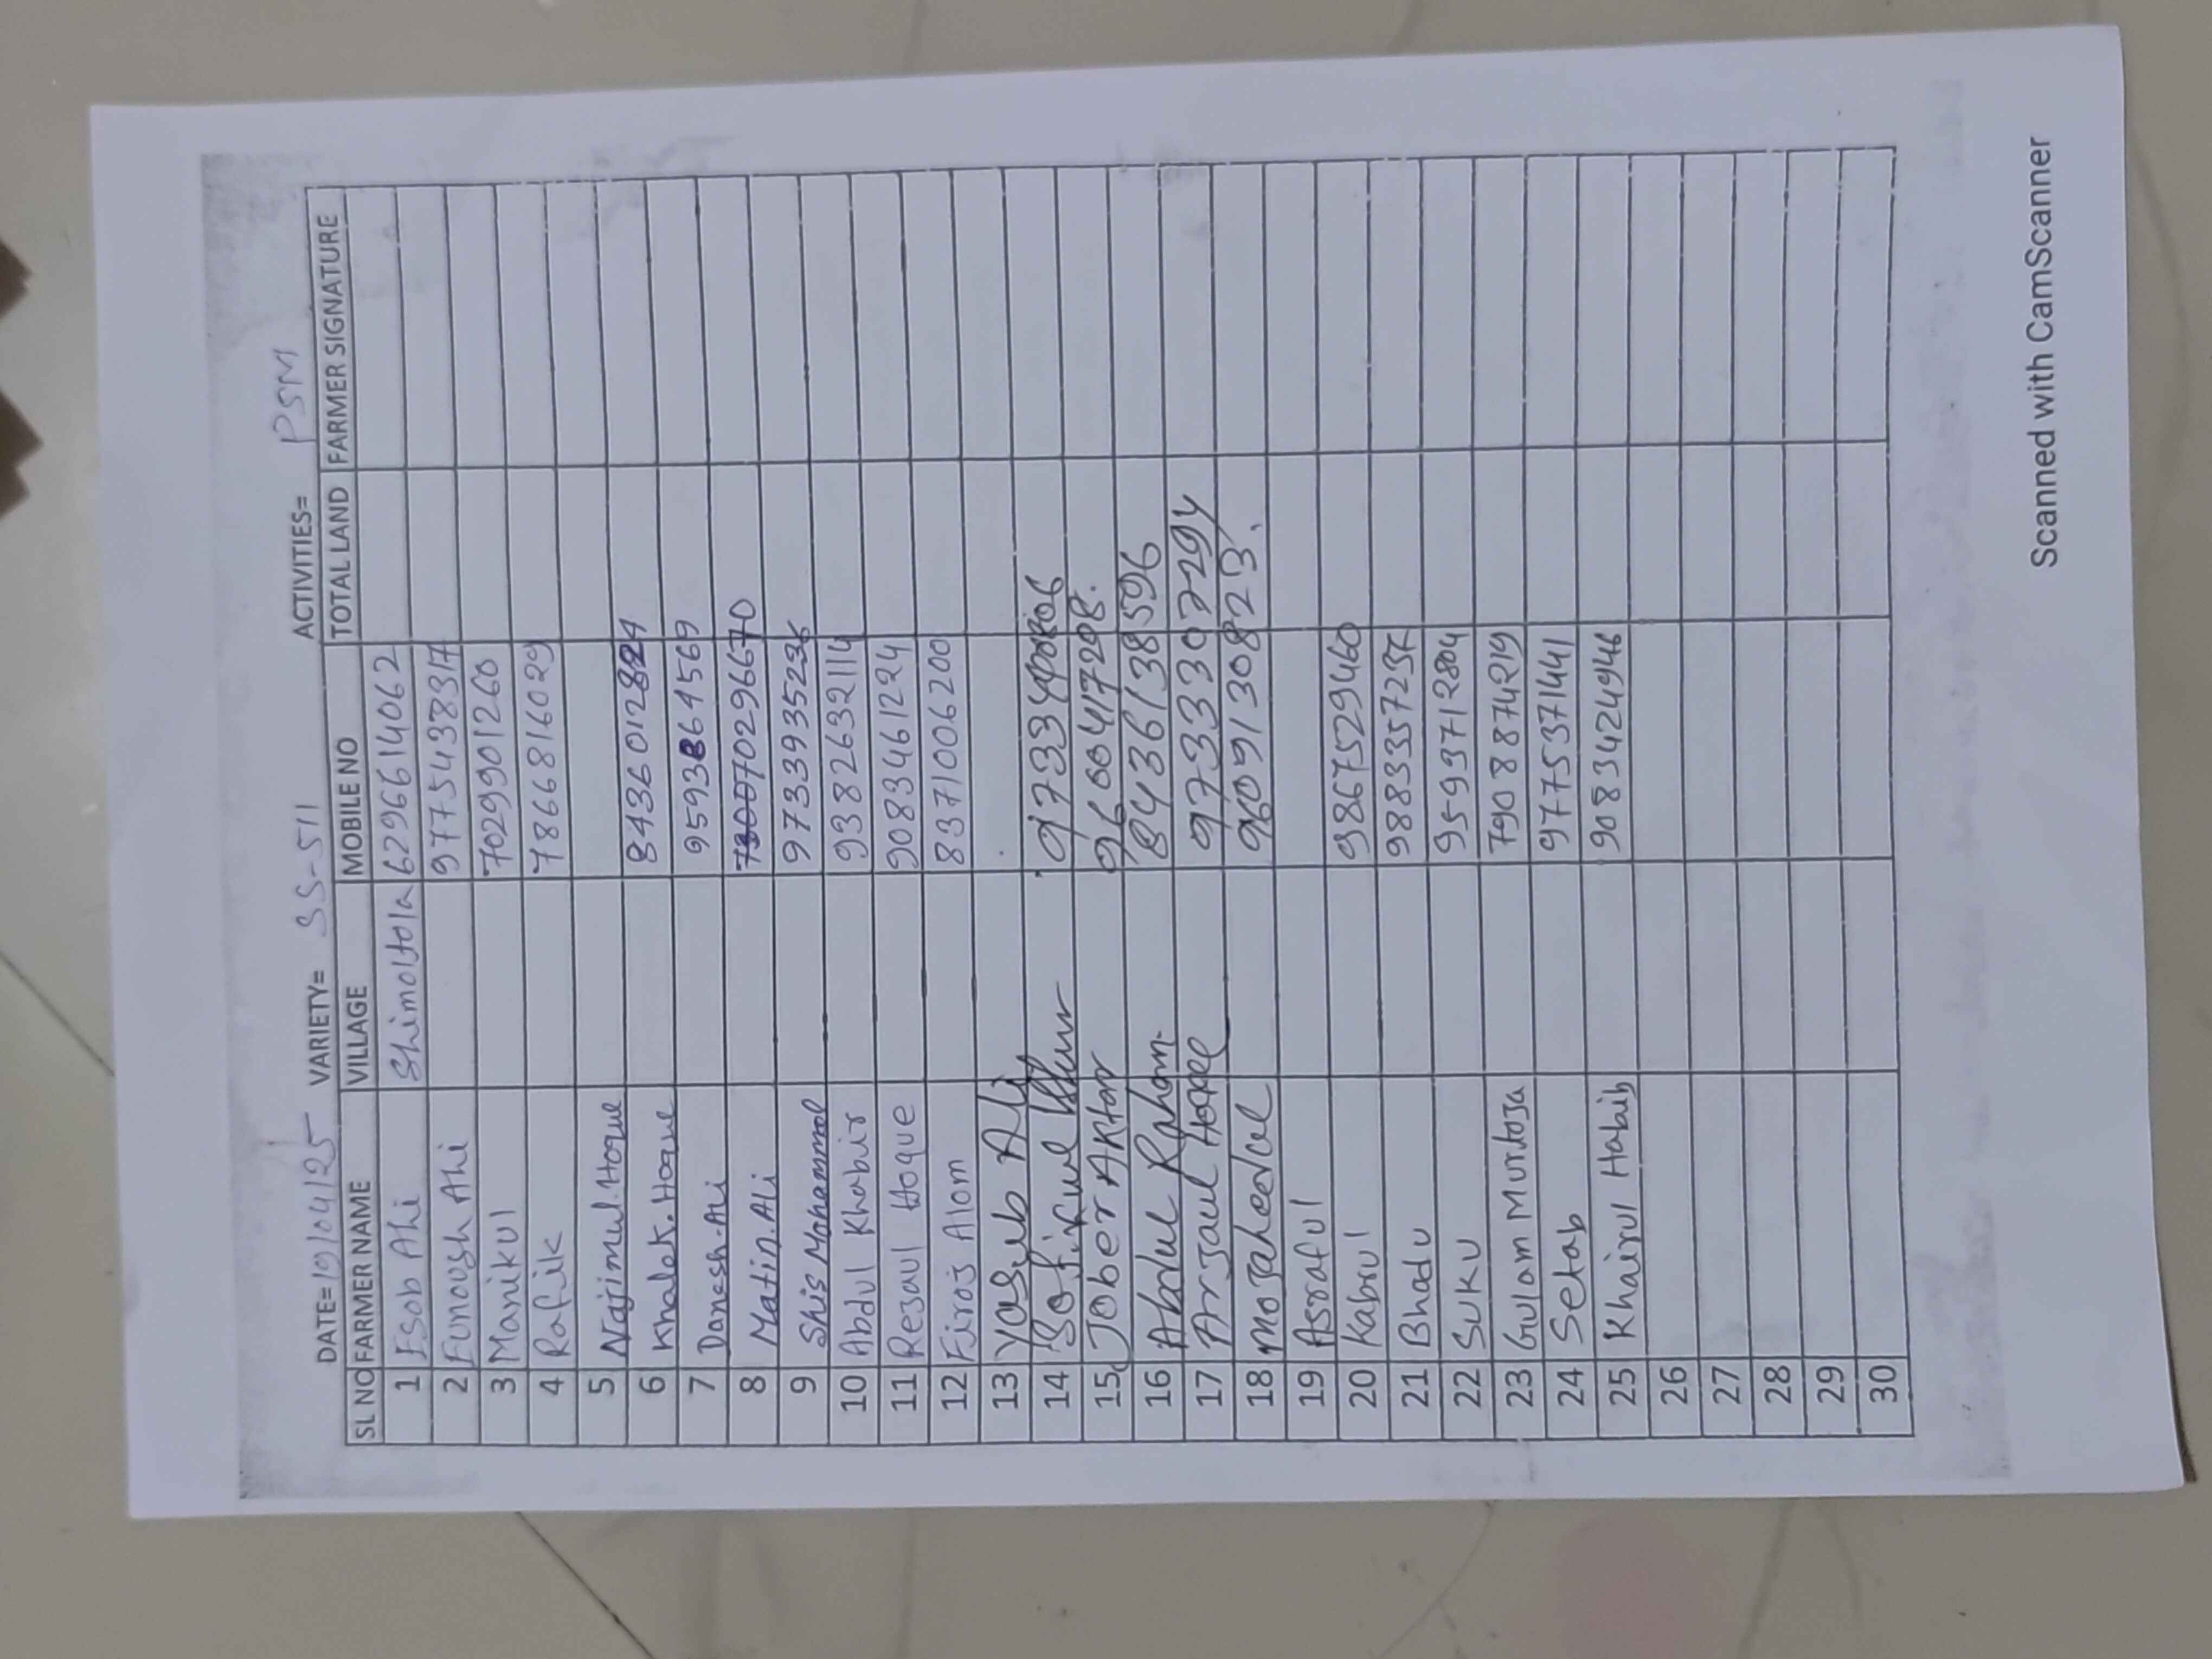 DATE= 19/04/25 VARIETY= SS-511 ACTIVITIES= PSM
SL NO FARMER NAME VILLAGE MOBILE NO TOTAL LAND FARMER SIGNATURE
1 Esob Ahi Shimoltola 6296614062
2 Eunoosh Ahi 9775438317
3 Manikul 7029901260
4 Rafik 7866816029
5 Najimul.Hoque
6 Khalek.Hoque 8436012884
7 Danesh.Ali 9593864569
8 Matin.Ali 70296670
9 Shis Mohammad 9733935236
10 Abdul Khabir 9382632114
11 Rezaul Hoque 9083461224
12 Firoj Alom 8371006200
13 Yasub Ali
14 Sofikul 9733400806
15 Jober Aktar 9600417298.
16 Abdul Raham 8436138596
17 Arzaul Hoque 9733307294
18 Mozaheerul 9609130823.
19 Asraful
20 Kabrul 9867529460
21 Bhadu 9883357237
22 Suku 9593712804
23 Gulam Murtoja 7908874219
24 Setab 9775371441
25 Khairul Habib 9083424946
26
27
28
29
30
Scanned with CamScanner